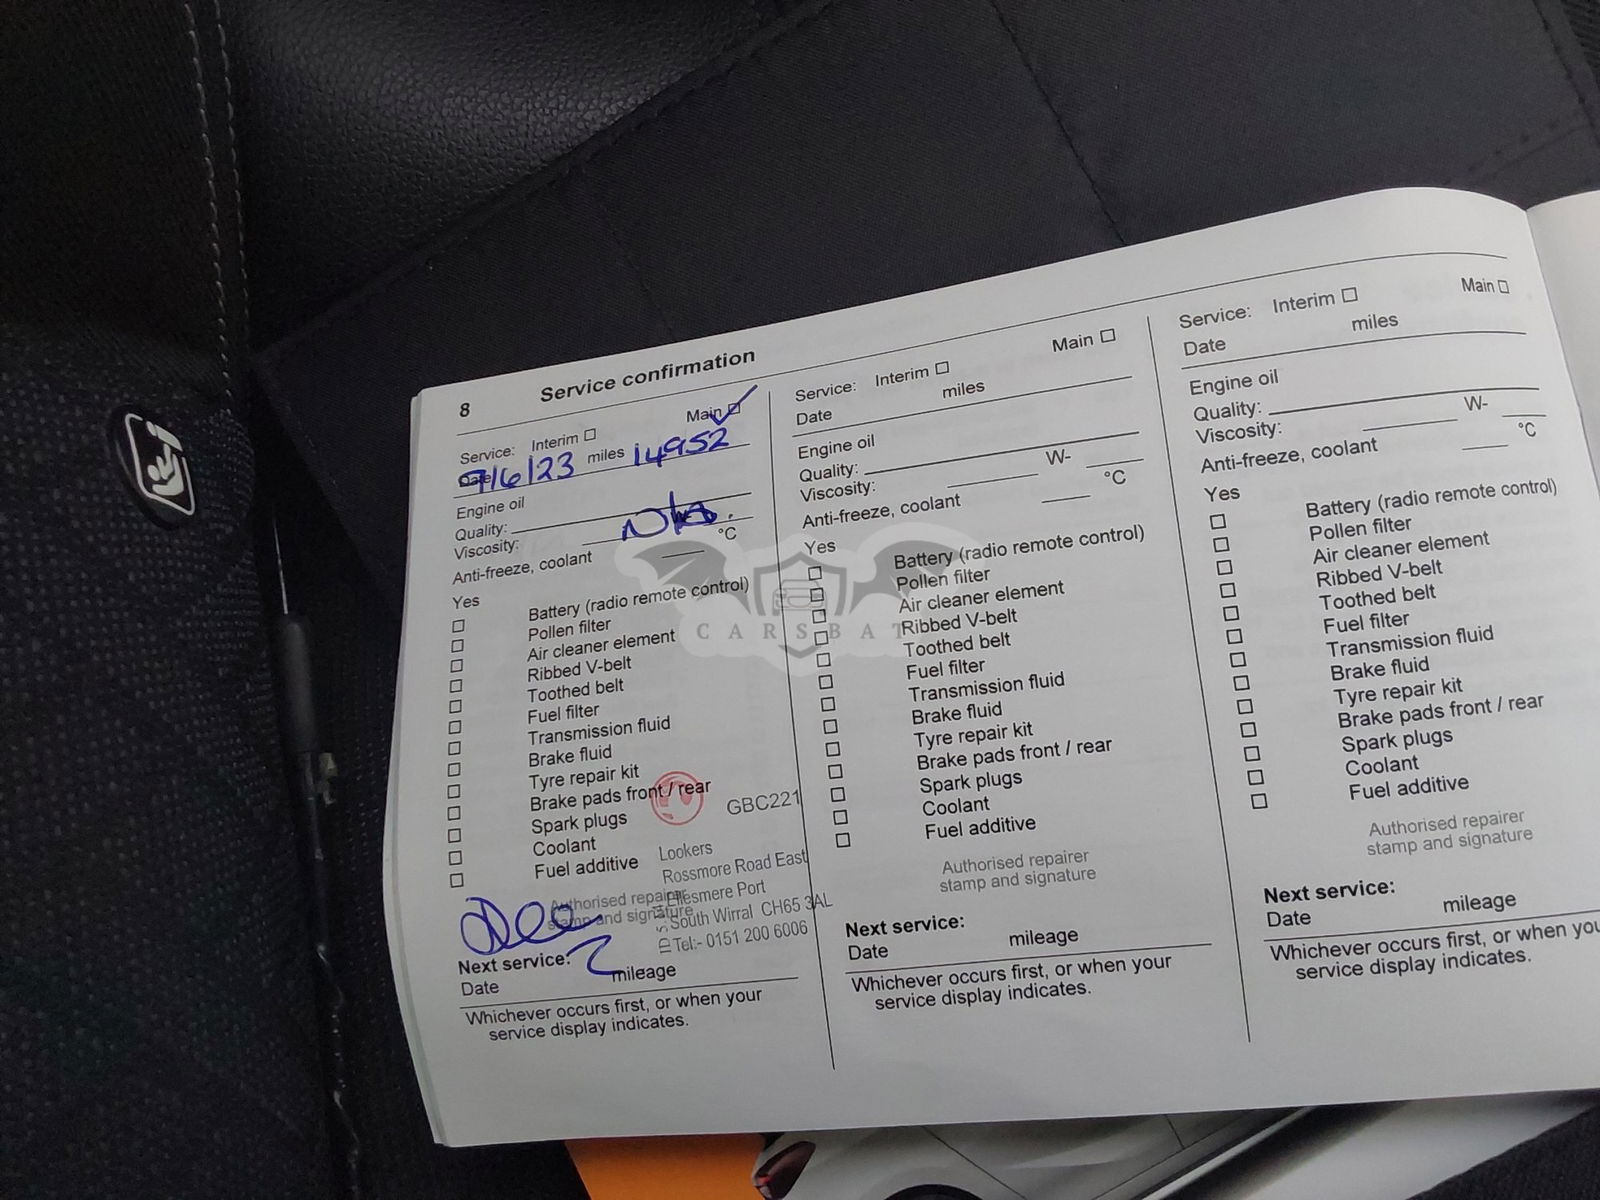 8 Service confirmation
Service: Interim Main
Date 9/6/23 miles 14952
Engine oil
Quality:
Viscosity: N/A.
Anti-freeze, coolant °C
Yes
Battery (radio remote control)
Pollen filter
Air cleaner element
Ribbed V-belt
Toothed belt
Fuel filter
Transmission fluid
Brake fluid
Tyre repair kit
Brake pads front / rear
Spark plugs
Coolant
Fuel additive
GBC221
Lookers
Rossmore Road East
Ellesmere Port
South Wirral CH65 3AL
Tel:- 0151 200 6006
Authorised repairer
stamp and signature
Next service:
Date mileage
Whichever occurs first, or when your
service display indicates.
Service: Interim Main
Date miles
Engine oil
Quality:
Viscosity: W-
Anti-freeze, coolant °C
Yes
Battery (radio remote control)
Pollen filter
Air cleaner element
Ribbed V-belt
Toothed belt
Fuel filter
Transmission fluid
Brake fluid
Tyre repair kit
Brake pads front / rear
Spark plugs
Coolant
Fuel additive
Authorised repairer
stamp and signature
Next service:
Date mileage
Whichever occurs first, or when your
service display indicates.
Service: Interim Main
Date miles
Engine oil
Quality:
Viscosity: W-
Anti-freeze, coolant °C
Yes
Battery (radio remote control)
Pollen filter
Air cleaner element
Ribbed V-belt
Toothed belt
Fuel filter
Transmission fluid
Brake fluid
Tyre repair kit
Brake pads front / rear
Spark plugs
Coolant
Fuel additive
Authorised repairer
stamp and signature
Next service:
Date mileage
Whichever occurs first, or when you
service display indicates.
CARSBAT